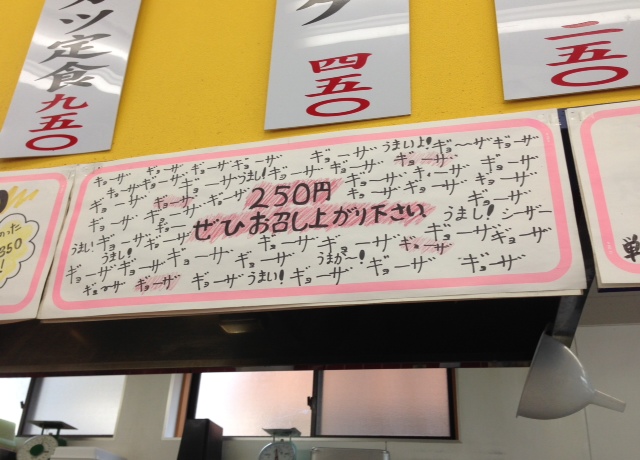 カツ定食九五〇
四五〇
二五〇
ギョーザ ギョーザ ギョーザ ギョーザ ギョーザ うまいよ! ギョ〜ザ ギョーザ
ギョーザ ギョーザ うまし! ギョーザ ギョーザ ギョーザ ギョーザ
ギョーザ ギョーザ 250円 ギョーザ ギョーザ ギョーザ
ギョーザ ギョーザ ぜひお召し上がり下さい うまし! シーザー
うまい! ギョーザ ギョーザ ギョーザ ギョーザ ギョーザ ギョーザ ギョーザ
ギョーザ ギョーザ うまし! ギョーザ ギョーザ うまが〜! ギョーザ ギョーザ ギョーザ
ギョーザ ギョーザ ギョーザ うまい! ギョーザ ギョーザ ギョーザ
350
!